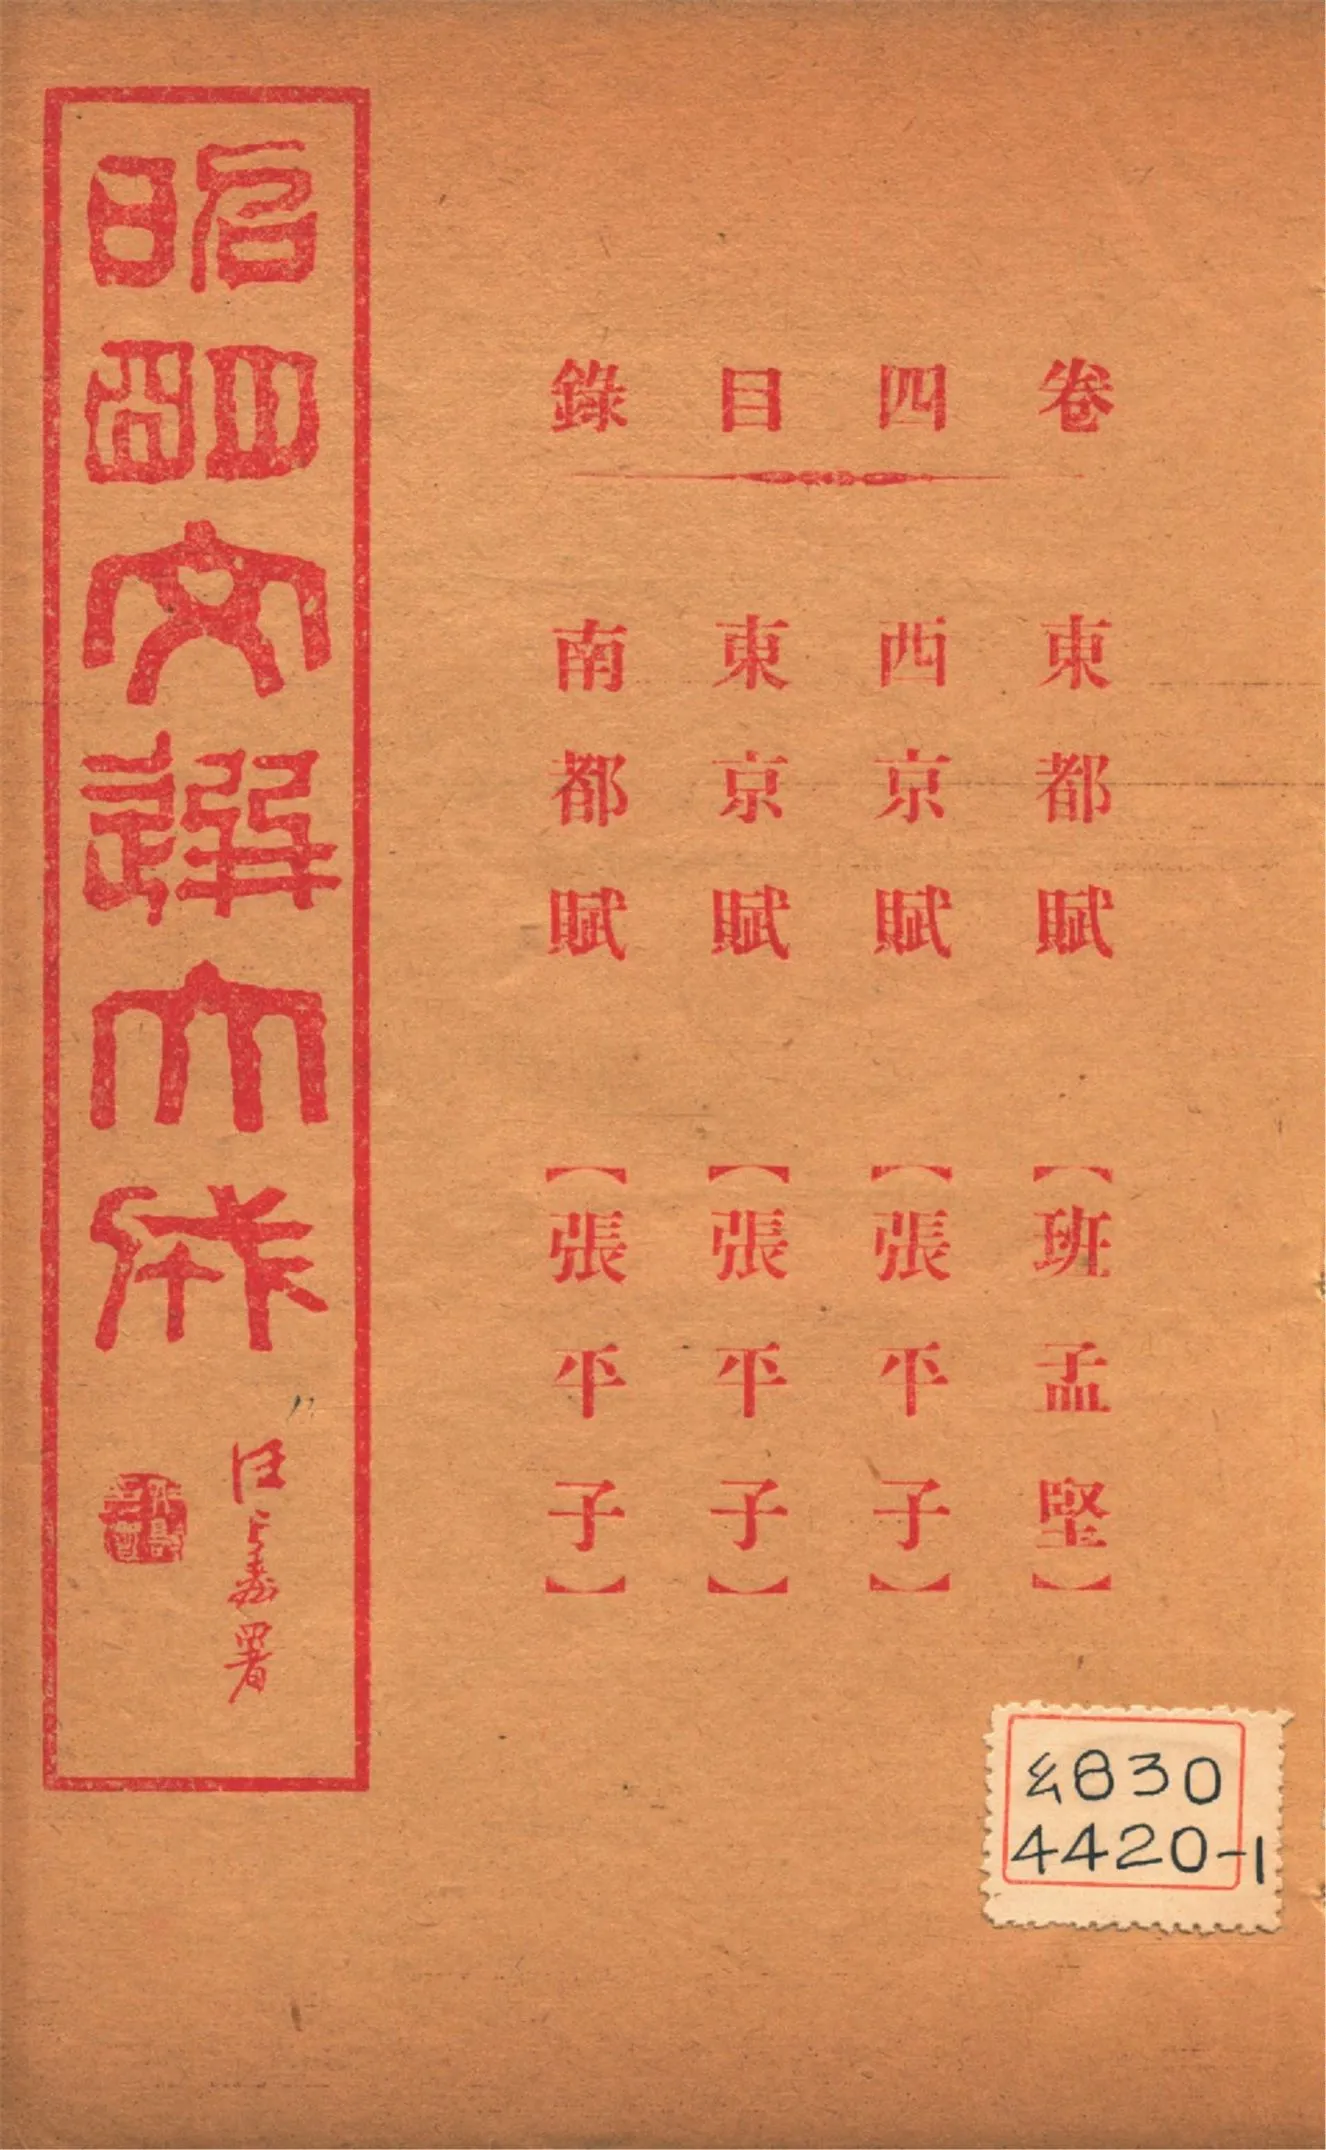 卷四目錄
東都賦【班孟堅】
西京賦【張平子】
東京賦【張平子】
南都賦【張平子】
昭明文選大成
署
830
4420-1